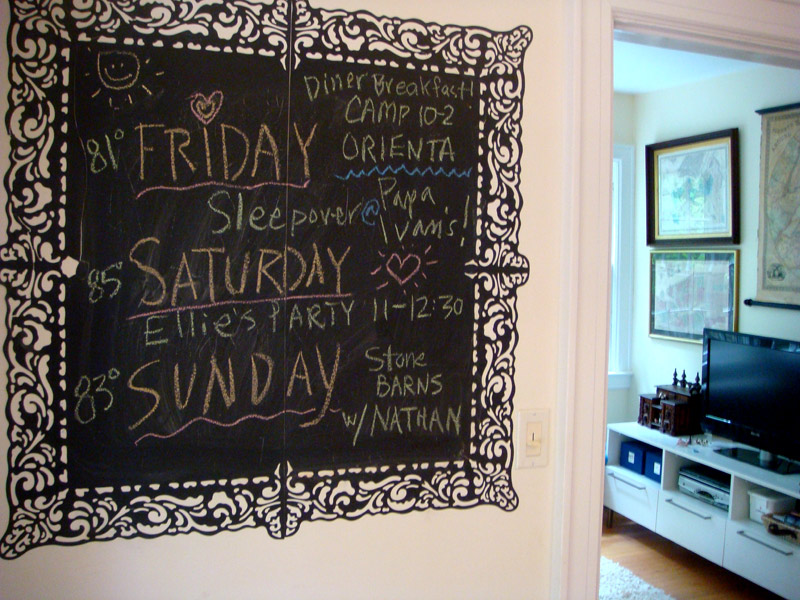 Diner Breakfast!
CAMP 10-2
81° FRIDAY ORIENTA
Sleepover @ Papa Ivan's!
85° SATURDAY
Ellie's PARTY 11-12:30
83° SUNDAY Stone BARNS
w/NATHAN